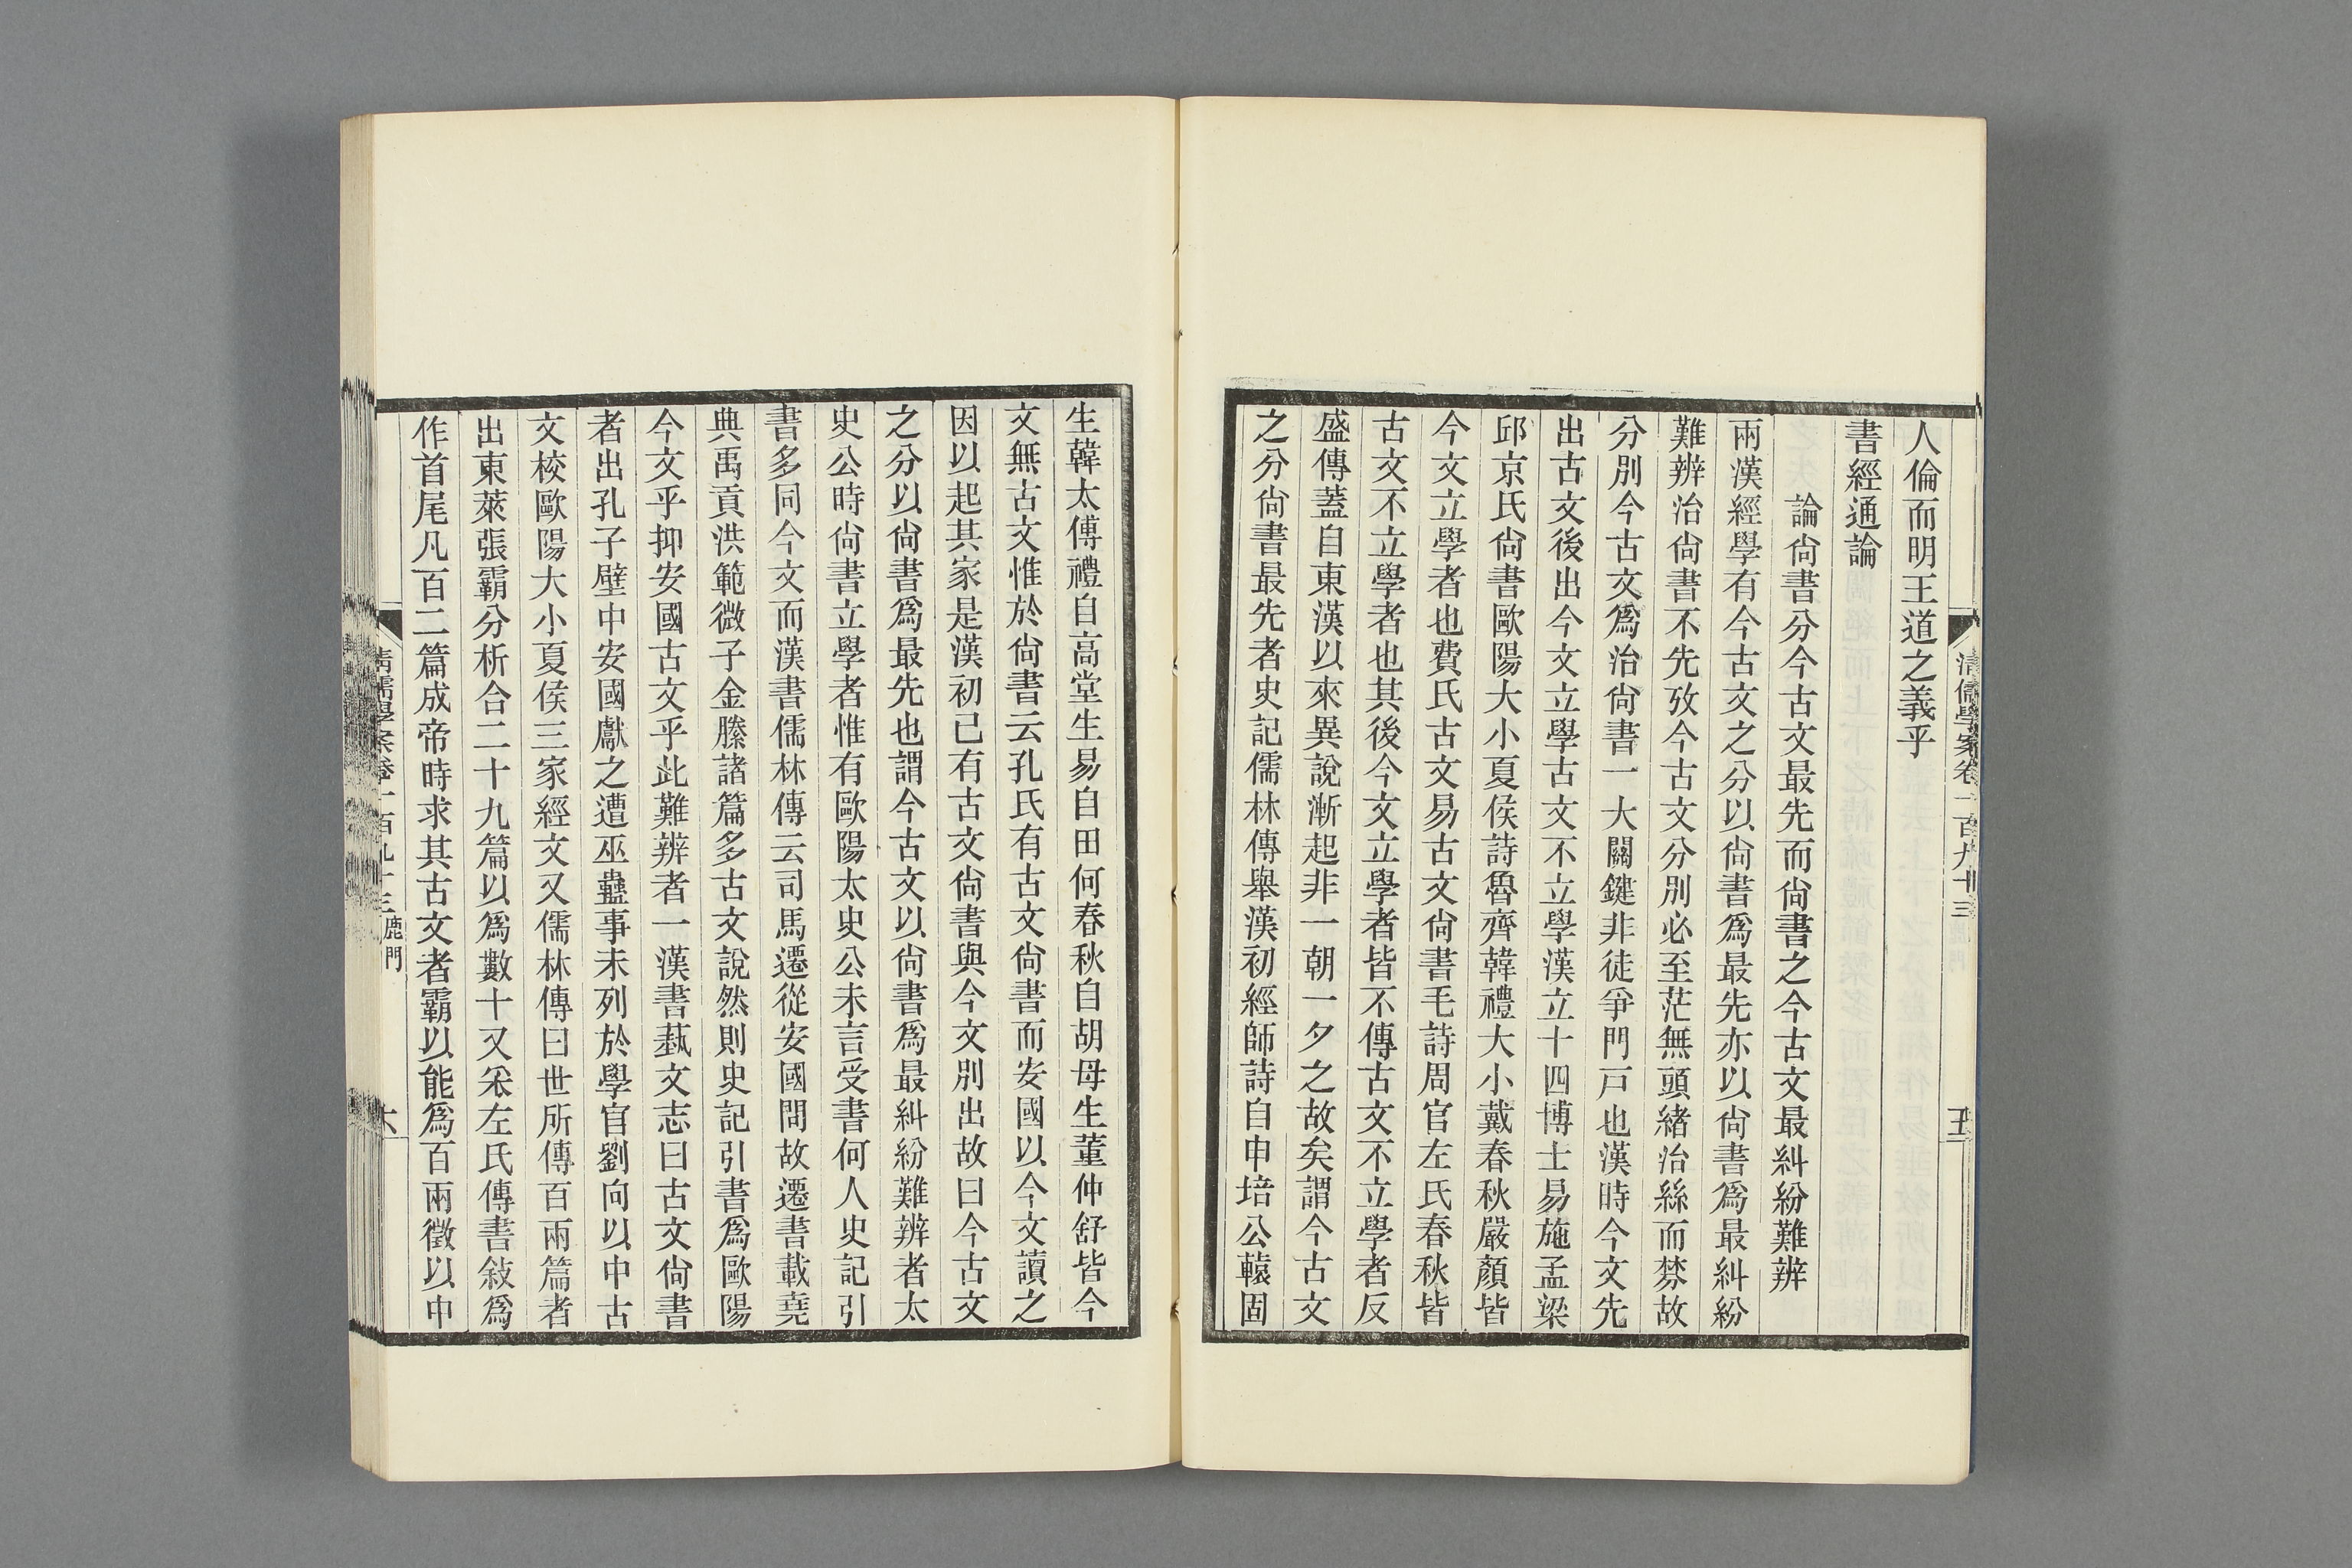 人倫而明王道之義乎
書經通論
論尙書分今古文最先而尙書之今古文最糾紛難辨
兩漢經學有今古文之分以尙書爲最先亦以尙書爲最糾紛
難辨治尙書不先攷今古文分別必至茫無頭緖治絲而棼故
分別今古文爲治尙書一大關鍵非徒爭門戸也漢時今文先
出古文後出今文立學古文不立學漢立十四博士易施孟梁
邱京氏尙書歐陽大小夏侯詩魯齊韓禮大小戴春秋嚴顏皆
今文立學者也費氏古文易古文尙書毛詩周官左氏春秋皆
古文不立學者也其後今文立學者皆不傳古文不立學者反
盛傳蓋自東漢以來異說漸起非一朝一夕之故矣謂今古文
之分尙書最先者史記儒林傳舉漢初經師詩自申培公轅固
清儒學案卷一百九十三
五
生韓太傅禮自高堂生易自田何春秋自胡母生董仲舒皆今
文無古文惟於尙書云孔氏有古文尙書而安國以今文讀之
因以起其家是漢初已有古文尙書與今文別出故曰今古文
之分以尙書爲最先也謂今古文以尙書爲最糾紛難辨者太
史公時尙書立學者惟有歐陽太史公未言受書何人史記引
書多同今文而漢書儒林傳云司馬遷從安國問故遷書載堯
典禹貢洪範微子金縢諸篇多古文說然則史記引書爲歐陽
今文乎抑安國古文乎此難辨者一漢書藝文志曰古文尙書
者出孔子壁中安國獻之遭巫蠱事未列於學官劉向以中古
文校歐陽大小夏侯三家經文又儒林傳曰世所傳百兩篇者
出東萊張霸分析合二十九篇以爲數十又采左氏傳書敍爲
作首尾凡百二篇成帝時求其古文者霸以能爲百兩徵以中
清儒學案卷一百九十三 鹿門
六